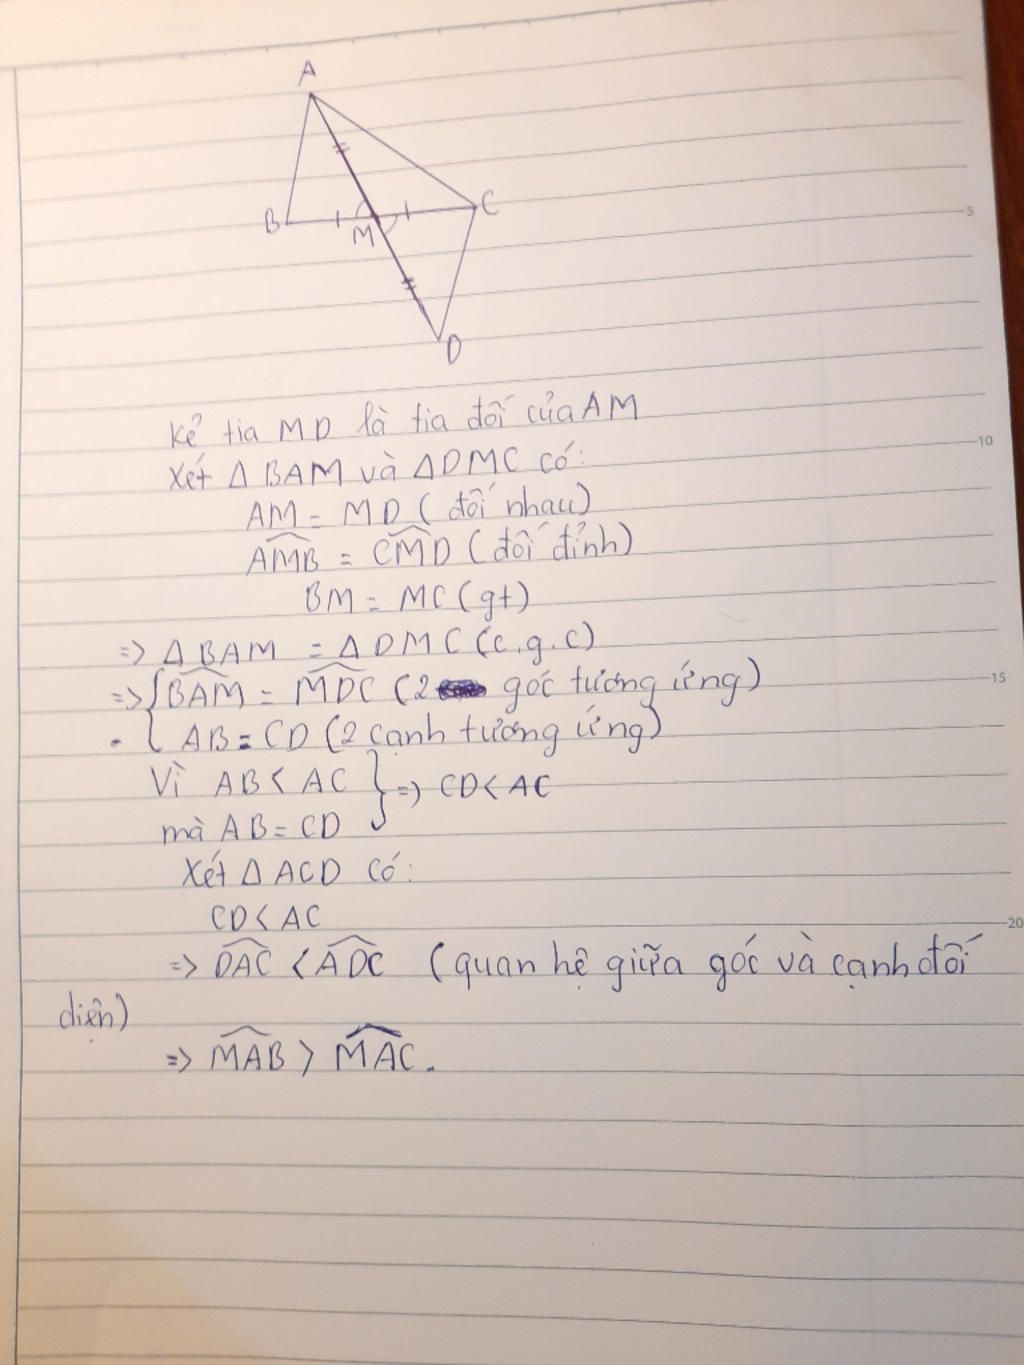 A
B
C
M
D
5
kẻ tia MD là tia đối của AM
10
Xét Δ BAM và ΔDMC có:
AM = MD ( đối nhau)
\widehat{AMB} = \widehat{CMD} ( đối đỉnh)
BM = MC ( gt)
=> Δ BAM = Δ DMC (c.g.c)
=> { \widehat{BAM} = \widehat{MDC} (2 góc tương ứng)
15
AB = CD (2 cạnh tương ứng)
Vì AB < AC } => CD < AC
mà AB = CD
Xét Δ ACD có:
CD < AC
20
=> \widehat{DAC} < \widehat{ADC} (quan hệ giữa góc và cạnh đối
diện)
=> \widehat{MAB} > \widehat{MAC}.